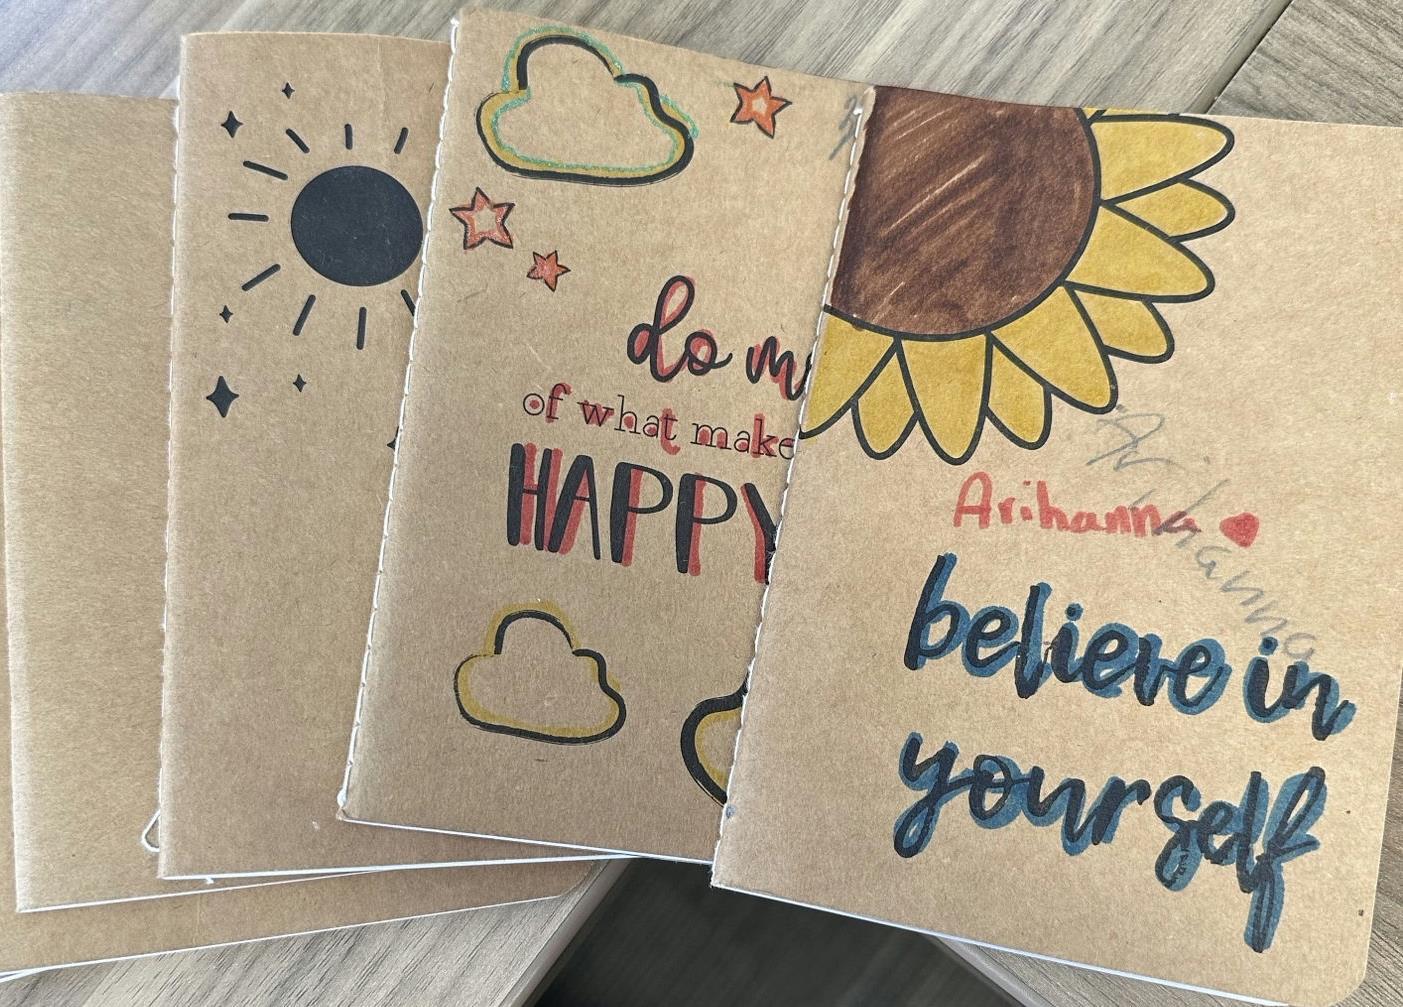 do m
of what make
HAPPY
Arihanna
Arihanna
believe in
yourself